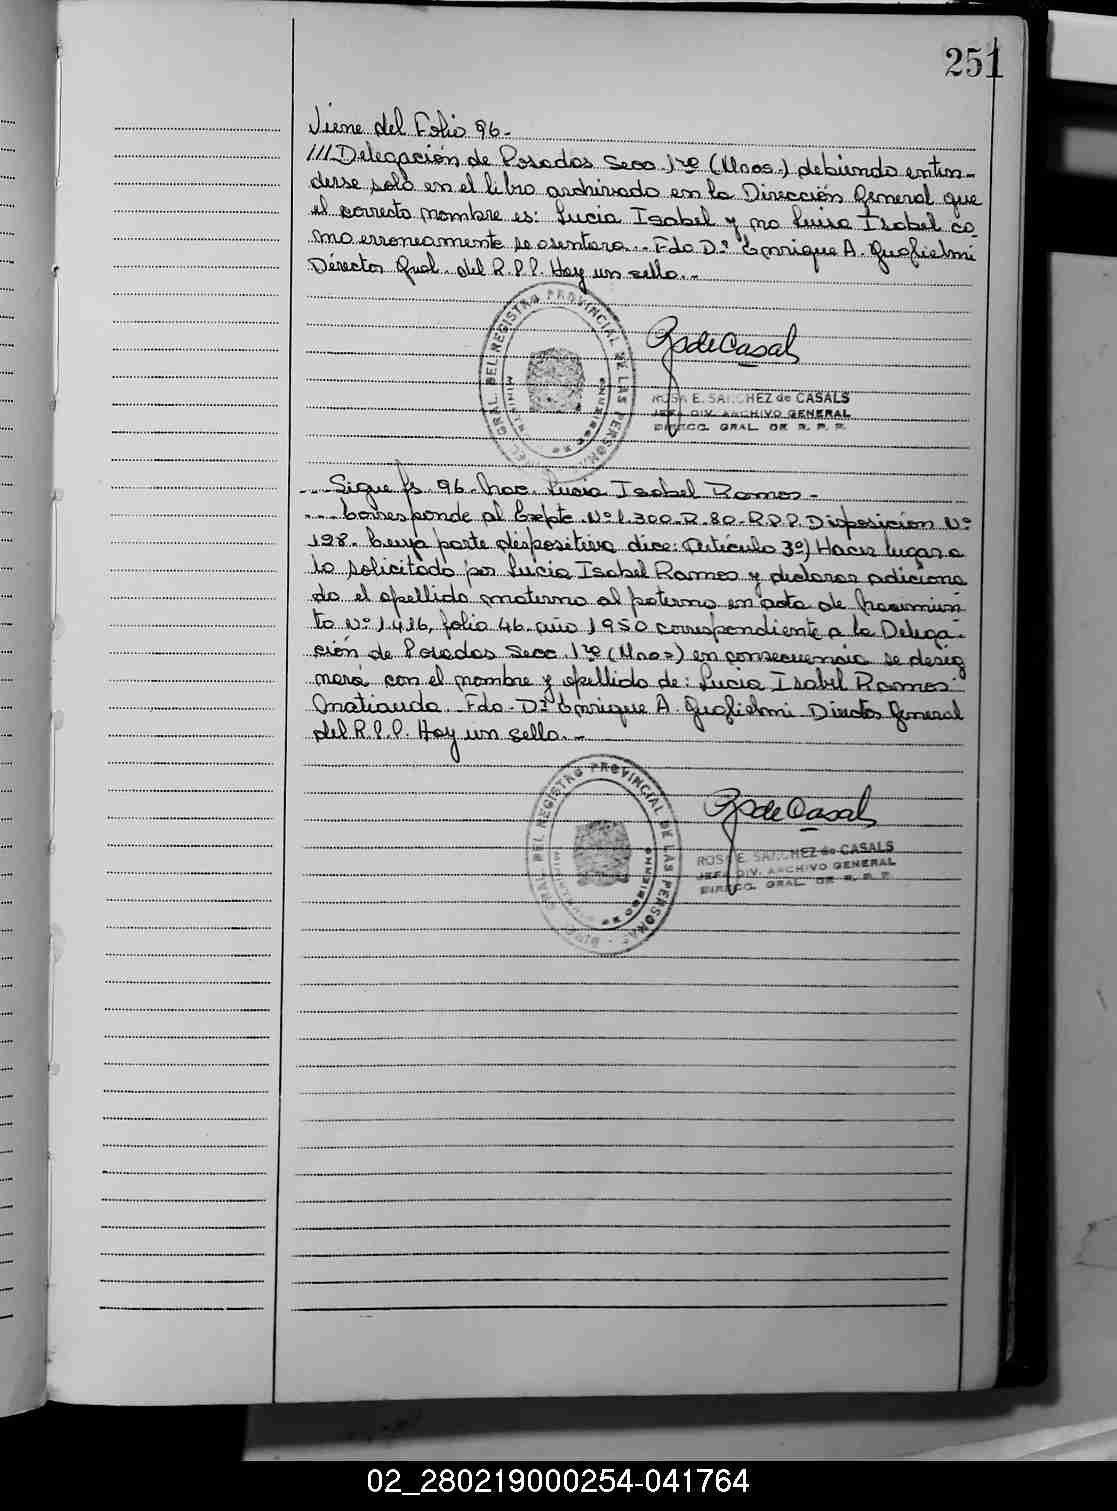 251
Viene del Folio 96.-
///Delegación de Posadas Secc. 1ra (Mnes.) debiendo enten-
derse solo en el libro archivado en la Dirección General que
el correcto nombre es: Lucia Isabel y no Luisa Isabel co-
mo erroneamente se asentara.. Fdo Dn Enrique A. Guglielmi
Director Gral. del R.P.P. Hay un sello..-
DEL REGISTRO PROVINCIAL DE LAS PERSONAS
ROSA E. SANCHEZ de CASALS
JEFA DIV. ARCHIVO GENERAL
DIRECC. GRAL. DE R. P. P.
....Sigue fs. 96. Nac. Lucia Isabel Ramos.-
....Corresponde al Expte. Nº 1.300-R-80-R.P.P. Disposición Nº
198. Cuya parte dispositiva dice: Artículo 3º) Hacer lugar a
lo solicitado por Lucia Isabel Ramos y declarar adiciona
do el apellido materno al paterno en acta de Nacimien
to Nº 1.416, folio 46 año 1950 correspondiente a la Delega-
ción de Posadas Secc. 1ra (Mnes) en consecuencia se desig
nará con el nombre y apellido de: Lucia Isabel Ramos
Fdo. Dn Enrique A. Guglielmi Director General
del R.P.P. Hay un sello..-
GRAL. DEL REGISTRO PROVINCIAL DE LAS PERSONAS
ROSA E. SANCHEZ de CASALS
JEFA DIV. ARCHIVO GENERAL
DIRECC. GRAL. DE R. P. P.
02_280219000254-041764